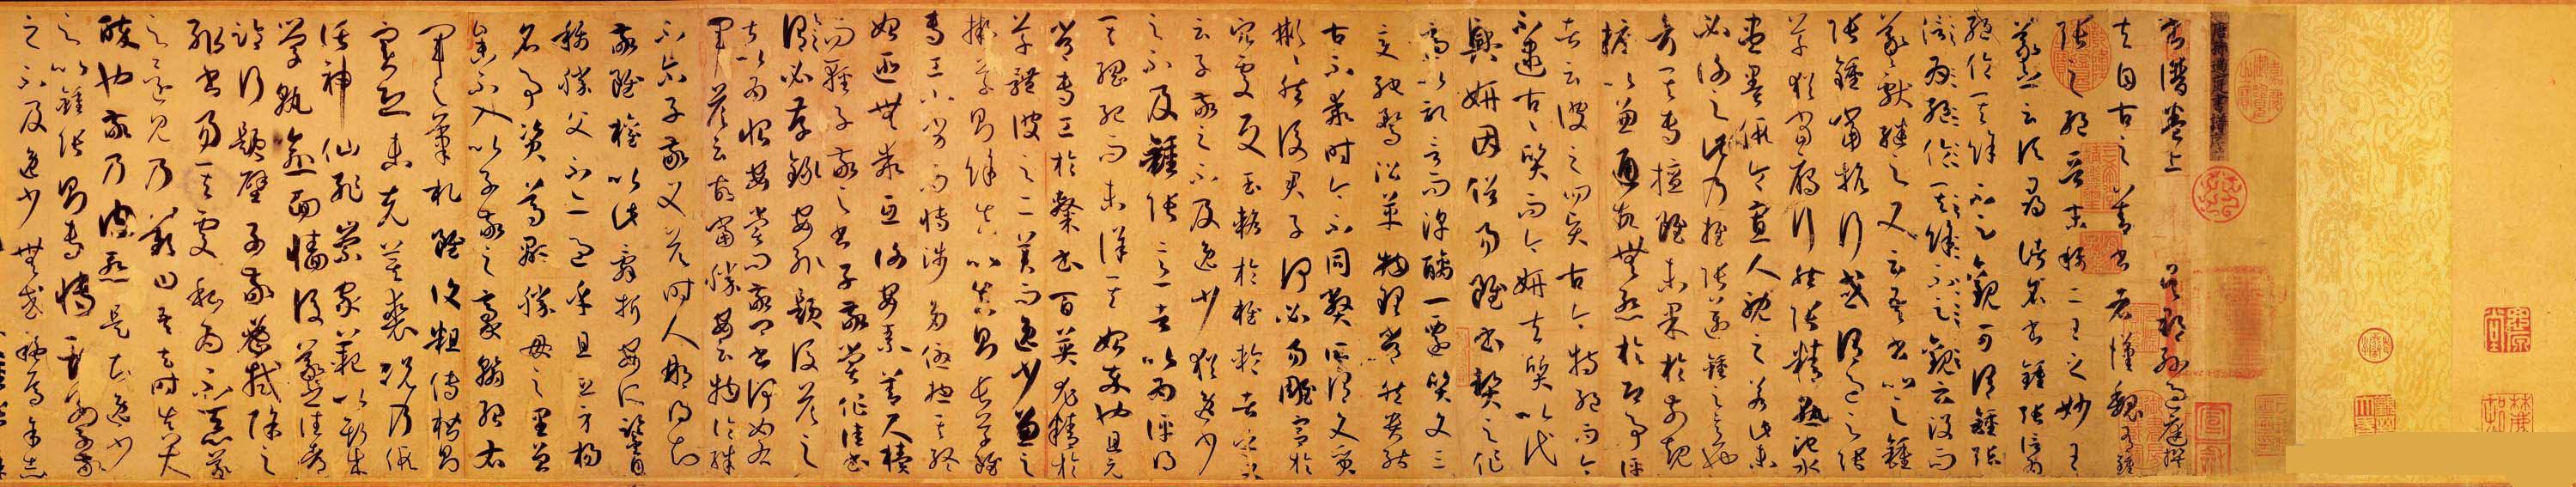 書譜卷上 吳郡孫過庭撰
夫自古之善書者漢魏有鍾
張之絕晉末稱二王之妙王
羲之云頃尋諸名書鍾張信為
絕倫其餘不足觀可謂鍾張
信為絕倫其餘不足觀云沒而
羲獻繼之又云吾書比之鍾
張鍾當抗行或謂過之張
草猶當雁行然張精熟池水
盡墨假令寡人耽之若此未
必謝之此乃推張邁鍾之意也
考其專擅雖未果於前規
摭以兼通故無慚於即事評
者云彼之四賢古今特絕而今
不逮古古質而今妍夫質以代
興妍因俗易雖書契之作
適以記言而淳醨一遷質文三
變馳騖沿革物理常然貴能
古不乖時今不同弊所謂文質
彬彬然後君子何必易雕宮於
穴處反玉輅於椎輪者乎又
云子敬之不及逸少猶逸少
之不及鍾張意者以為評得
其綱紀而未詳其始卒也且元
常專工於隸書百英尤精於
草體彼之二美而逸少兼之
擬草則餘真比真則長草雖
專工小劣而博涉多優總其終
始匪無乖互謝安素善尺牘
而輕子敬之書子敬嘗作佳書
與之謂必存錄安輒題後答之
甚以為恨安嘗問敬卿書何如右
軍答云故當勝安云物論殊
不爾子敬又答時人那得知
敬雖權以此辭折安所鑒自
稱勝父不亦過乎且立身揚
名事資尊顯勝母之里曾
參不入以子敬之豪翰紹右
軍之筆札雖復粗傳楷則
實恐未克箕裘況乃假
託神仙恥崇家範以斯成
學孰愈面牆後羲之往都
臨行題壁子敬密拭除之
輒書易其處私為不惡羲
之還見乃歎曰吾去時真大
醉也敬乃內慚是知逸少
之比鍾張則專博斯別子敬
之不及逸少無或疑焉余志